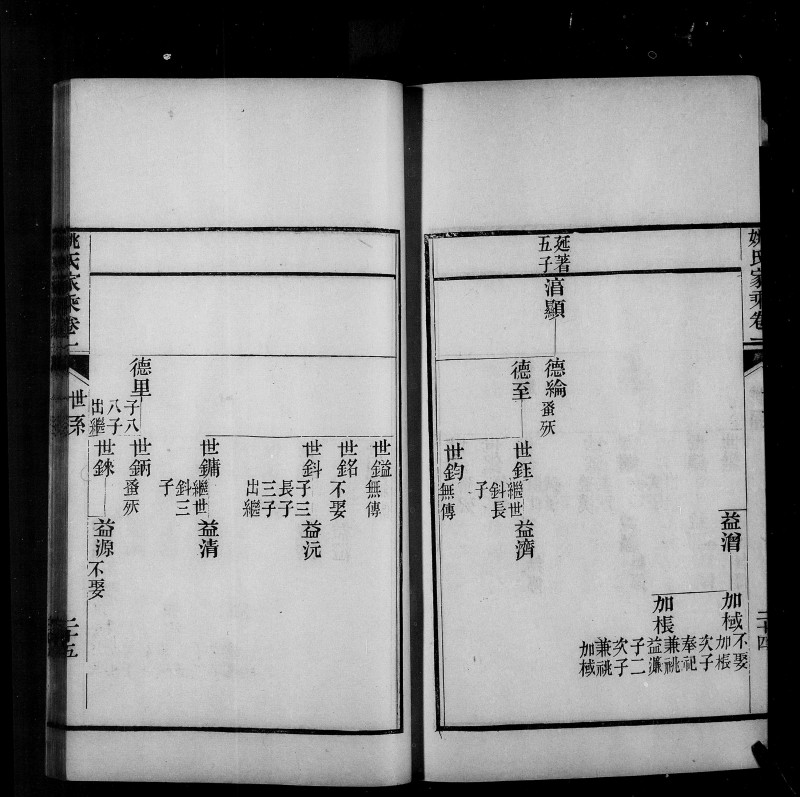 姚氏家乘卷一
二十四
益溍
加棫
不娶
加棖
次子
奉祀
加棖
兼祧
益濂
子二
次子
兼祧
加棫
延著
五子
淯顯
德綸
蚤歿
德至
世鈺
繼世
鈄長
子
益濟
世鈞
無傳
世鎰
無傳
世銘
不娶
世鈄
子三
長子
三子
出繼
益沅
世鏞
繼世
鈄三
子
益清
德里
子八
八子
出繼
世鈵
蚤歿
世錸
益源
不娶
姚氏家乘卷一
世系
二十五